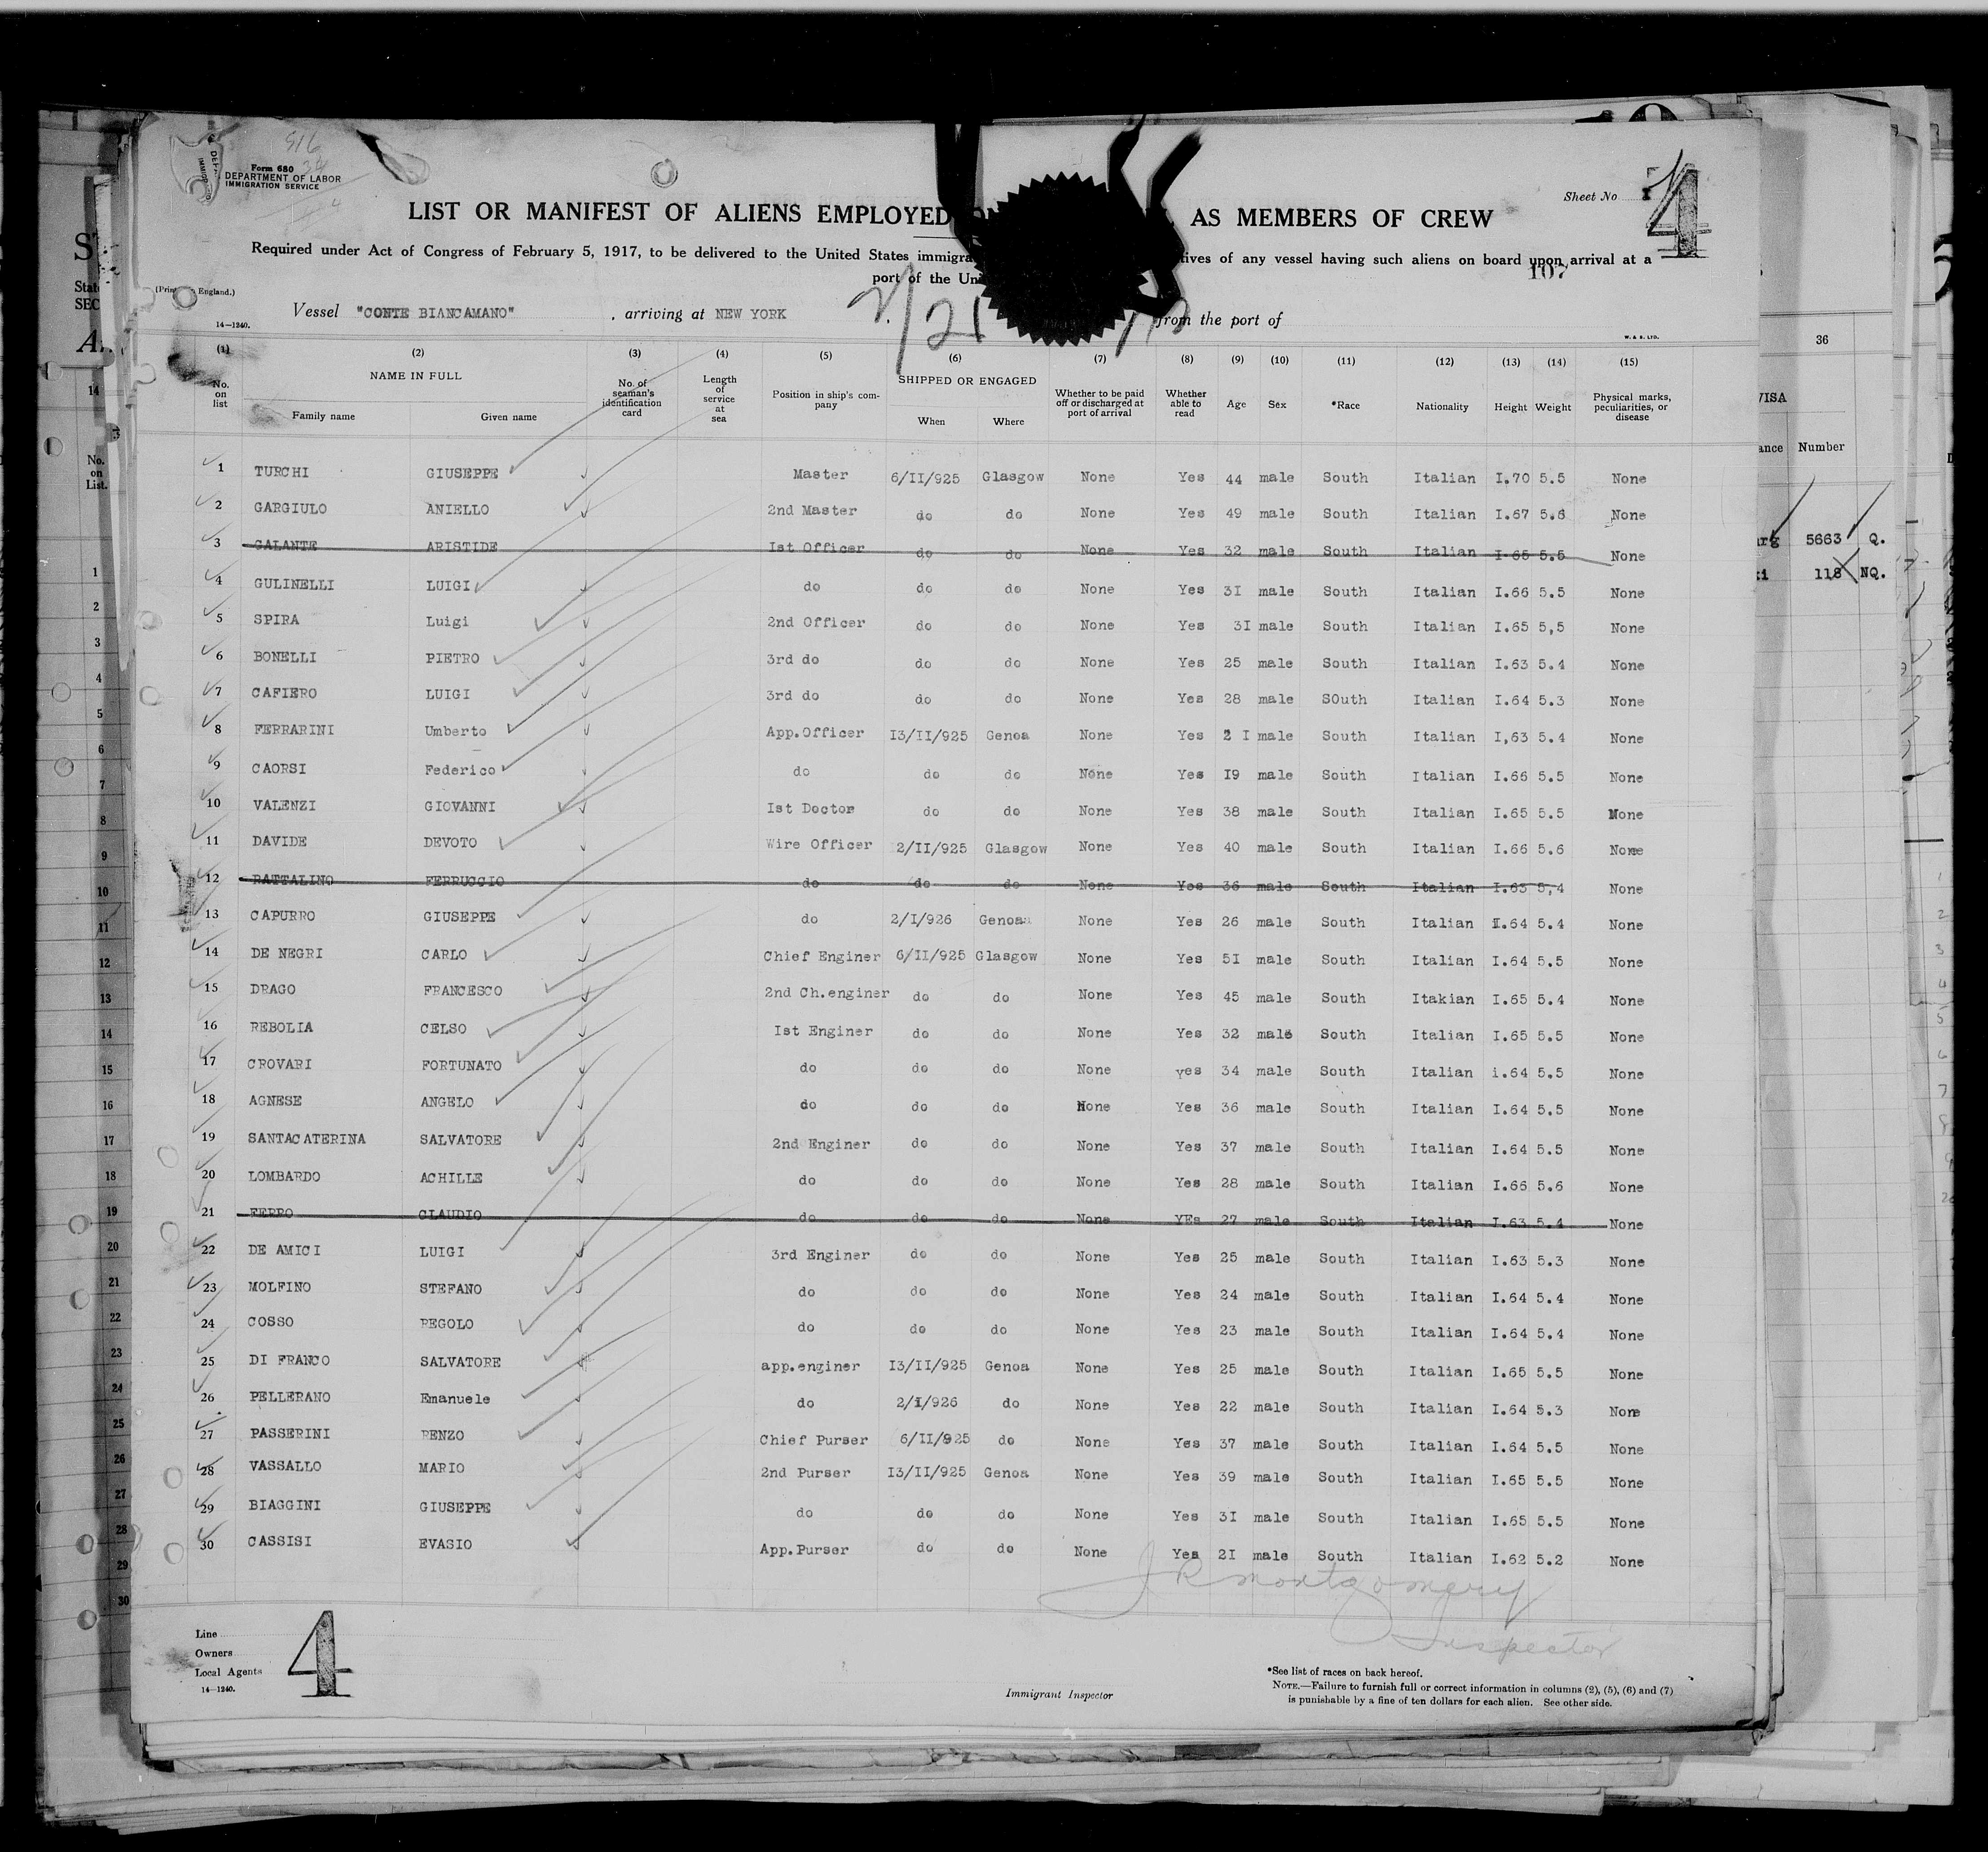 516
34
Form 680
DEPARTMENT OF LABOR
IMMIGRATION SERVICE
Sheet No 4
LIST OR MANIFEST OF ALIENS EMPLOYED AS MEMBERS OF CREW
Required under Act of Congress of February 5, 1917, to be delivered to the United States immigra tives of any vessel having such aliens on board upon arrival at a
port of the Uni
107
England.)
14—1240.
Vessel "CONTE BIANCAMANO" , arriving at NEW YORK 2/21 from the port of
W. & S. LTD.
(1) (2) (3) (4) (5) (6) (7) (8) (9) (10) (11) (12) (13) (14) (15)
No. on list NAME IN FULL Family name Given name No. of seaman's identification card Length of service at sea Position in ship's company SHIPPED OR ENGAGED When Where Whether to be paid off or discharged at port of arrival Whether able to read Age Sex *Race Nationality Height Weight Physical marks, peculiarities, or disease
1 TURCHI GIUSEPPE Master 6/II/925 Glasgow None Yes 44 male South Italian I.70 5.5 None
2 GARGIULO ANIELLO 2nd Master do do None Yes 49 male South Italian I.67 5.6 None
3 GALANTE ARISTIDE Ist Officer do do None Yes 32 male South Italian I.65 5.5 None
4 GULINELLI LUIGI do do do None Yes 3I male South Italian I.66 5.5 None
5 SPIRA Luigi 2nd Officer do do None Yes 3I male South Italian I.65 5,5 None
6 BONELLI PIETRO 3rd do do do None Yes 25 male South Italian I.63 5.4 None
7 CAFIERO LUIGI 3rd do do do None Yes 28 male SOuth Italian I.64 5.3 None
8 FERRARINI Umberto App.Officer I3/II/925 Genoa None Yes 2 I male South Italian I,63 5.4 None
9 CAORSI Federico do do do None Yes I9 male South Italian I.66 5.5 None
10 VALENZI GIOVANNI Ist Doctor do do None Yes 38 male South Italian I.65 5.5 None
11 DAVIDE DEVOTO Wire Officer 2/II/925 Glasgow None Yes 40 male South Italian I.66 5.6 None
12 BATTALINO FERRUCCIO do do do None Yes 36 male South Italian I.63 5,4 None
13 CAPURRO GIUSEPPE do 2/I/926 Genoa None Yes 26 male South Italian I.64 5.4 None
14 DE NEGRI CARLO Chief Enginer 6/II/925 Glasgow None Yes 5I male South Italian I.64 5.5 None
15 DRAGO FRANCESCO 2nd Ch.enginer do do None Yes 45 male South Itakian I.65 5.4 None
16 REBOLIA CELSO Ist Enginer do do None Yes 32 male South Italian I.65 5.5 None
17 CROVARI FORTUNATO do do do None yes 34 male South Italian i.64 5.5 None
18 AGNESE ANGELO do do do None Yes 36 male South Italian I.64 5.5 None
19 SANTACATERINA SALVATORE 2nd Enginer do do None Yes 37 male South Italian I.64 5.5 None
20 LOMBARDO ACHILLE do do do None Yes 28 male South Italian I.66 5.6 None
21 FERRO CLAUDIO do do do None YEs 27 male South Italian I.63 5.4 None
22 DE AMICI LUIGI 3rd Enginer do do None Yes 25 male South Italian I.63 5.3 None
23 MOLFINO STEFANO do do do None Yes 24 male South Italian I.64 5.4 None
24 COSSO REGOLO do do do None Yes 23 male South Italian I.64 5.4 None
25 DI FRANCO SALVATORE app.enginer I3/II/925 Genoa None Yes 25 male South Italian I.65 5.5 None
26 PELLERANO Emanuele do 2/I/926 do None Yes 22 male South Italian I.64 5.3 None
27 PASSERINI RENZO Chief Purser 6/II/925 do None Yes 37 male South Italian I.64 5.5 None
28 VASSALLO MARIO 2nd Purser I3/II/925 Genoa None Yes 39 male South Italian I.65 5.5 None
29 BIAGGINI GIUSEPPE do do do None Yes 3I male South Italian I.65 5.5 None
30 CASSISI EVASIO App.Purser do do None Yes 2I male South Italian I.62 5.2 None
J R Montgomery
Inspector
Line
Owners
Local Agents
14—1240.
4
Immigrant Inspector
*See list of races on back hereof.
NOTE.—Failure to furnish full or correct information in columns (2), (5), (6) and (7)
is punishable by a fine of ten dollars for each alien. See other side.
36
VISA
ance Number
5663 Q.
118 NQ.